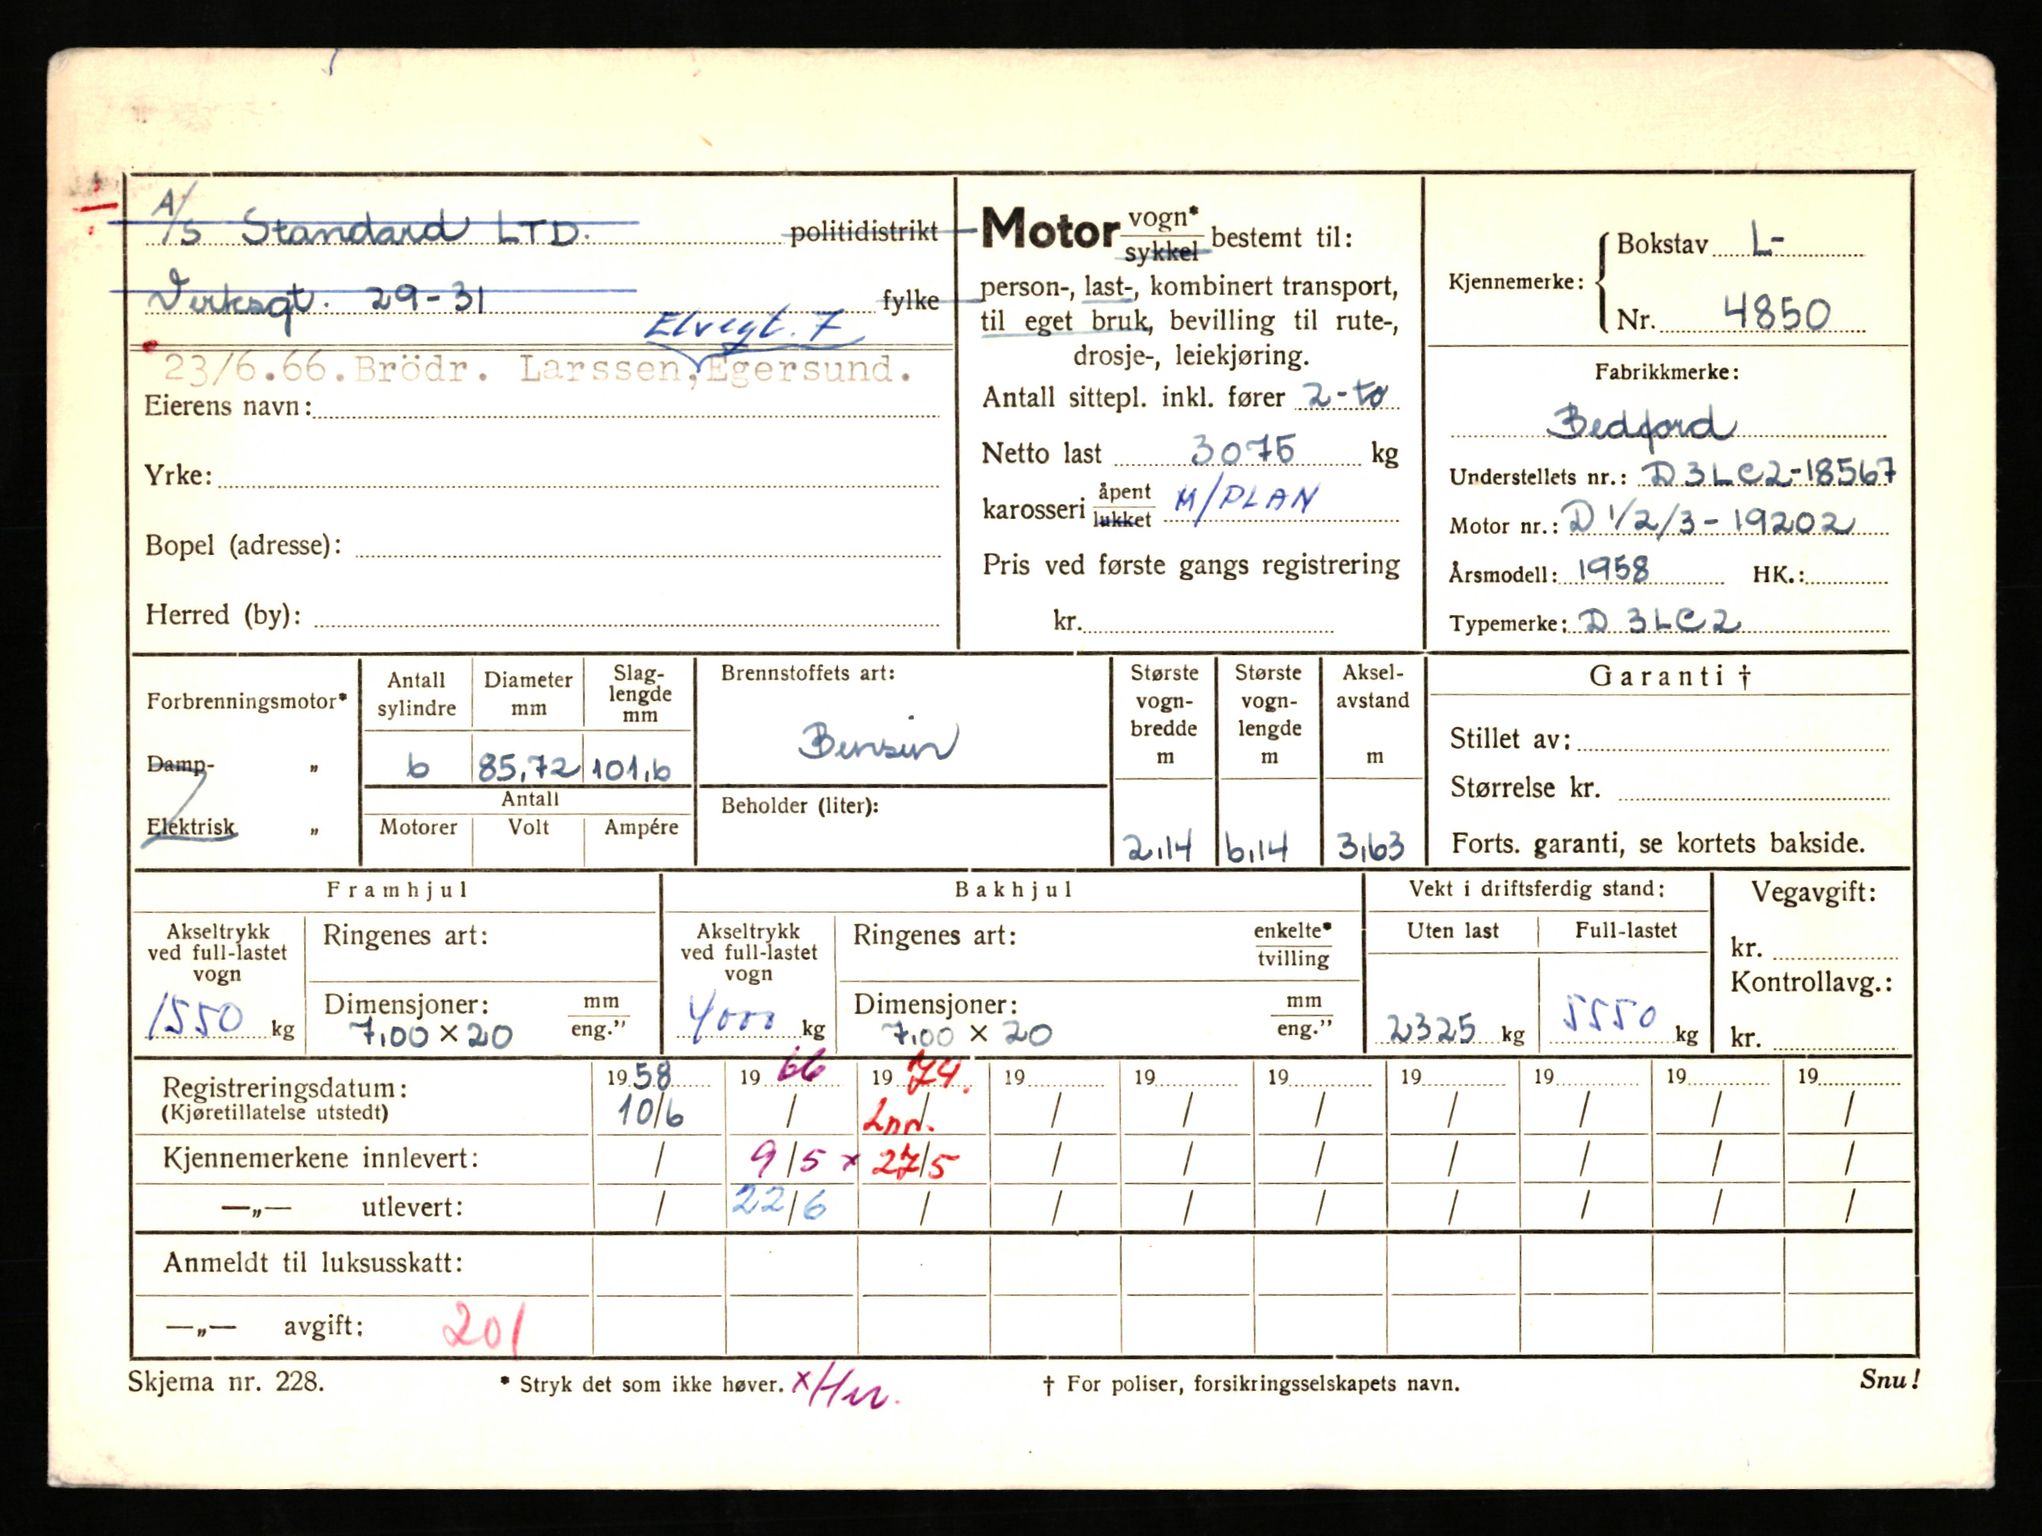 A/S Standard LTD. politidistrikt
Verksgt. 29-31 fylke
Elvegt. 7
23/6.66. Brödr. Larssen, Egersund.
Eierens navn:
Yrke:
Bopel (adresse):
Herred (by):
Motor vogn* sykkel bestemt til:
person-, last-, kombinert transport,
til eget bruk, bevilling til rute-,
drosje-, leiekjøring.
Antall sittepl. inkl. fører 2-to
Netto last 3075 kg
karosseri åpent lukket M/PLAN
Pris ved første gangs registrering
kr.
Kjennemerke: Bokstav L-
Nr. 4850
Fabrikkmerke:
Bedford
Understellets nr.: D3LC2-18567
Motor nr.: D 1/2/3-19202
Årsmodell: 1958 HK.:
Typemerke: D 3LC2
Forbrenningsmotor*
Damp- „
Elektrisk „
Antall sylindre
6
Diameter mm
85,72
Slag-lengde mm
101,6
Antall
Motorer Volt Ampére
Brennstoffets art:
Bensin
Beholder (liter):
Største vogn-bredde m
2,14
Største vogn-lengde m
6,14
Aksel-avstand m
3,63
Garanti †
Stillet av:
Størrelse kr.
Forts. garanti, se kortets bakside.
Framhjul
Akseltrykk ved full-lastet vogn
1550 kg
Ringenes art:
Dimensjoner: mm eng.”
7,00 × 20
Bakhjul
Akseltrykk ved full-lastet vogn
4000 kg
Ringenes art: enkelte* tvilling
Dimensjoner: mm eng.”
7,00 × 20
Vekt i driftsferdig stand:
Uten last Full-lastet
2325 kg 5550 kg
Vegavgift:
kr.
Kontrollavg.:
kr.
Registreringsdatum: 1958 1966 1974. 19 19 19 19 19 19 19
(Kjøretillatelse utstedt) 10/6 / Inn. / / / / / / / /
Kjennemerkene innlevert: / 9/5 × 27/5 / / / / / / /
—„— utlevert: / 22/6 / / / / / / / /
Anmeldt til luksusskatt:
—„— avgift: 201
Skjema nr. 228. * Stryk det som ikke høver. † For poliser, forsikringsselskapets navn. Snu!